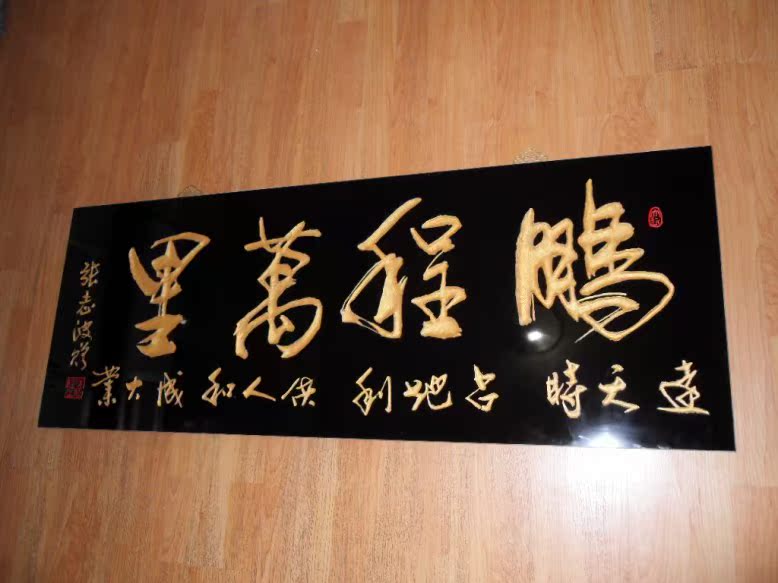 鵬程萬里
達天時 占地利 俱人和 成大業
張志波